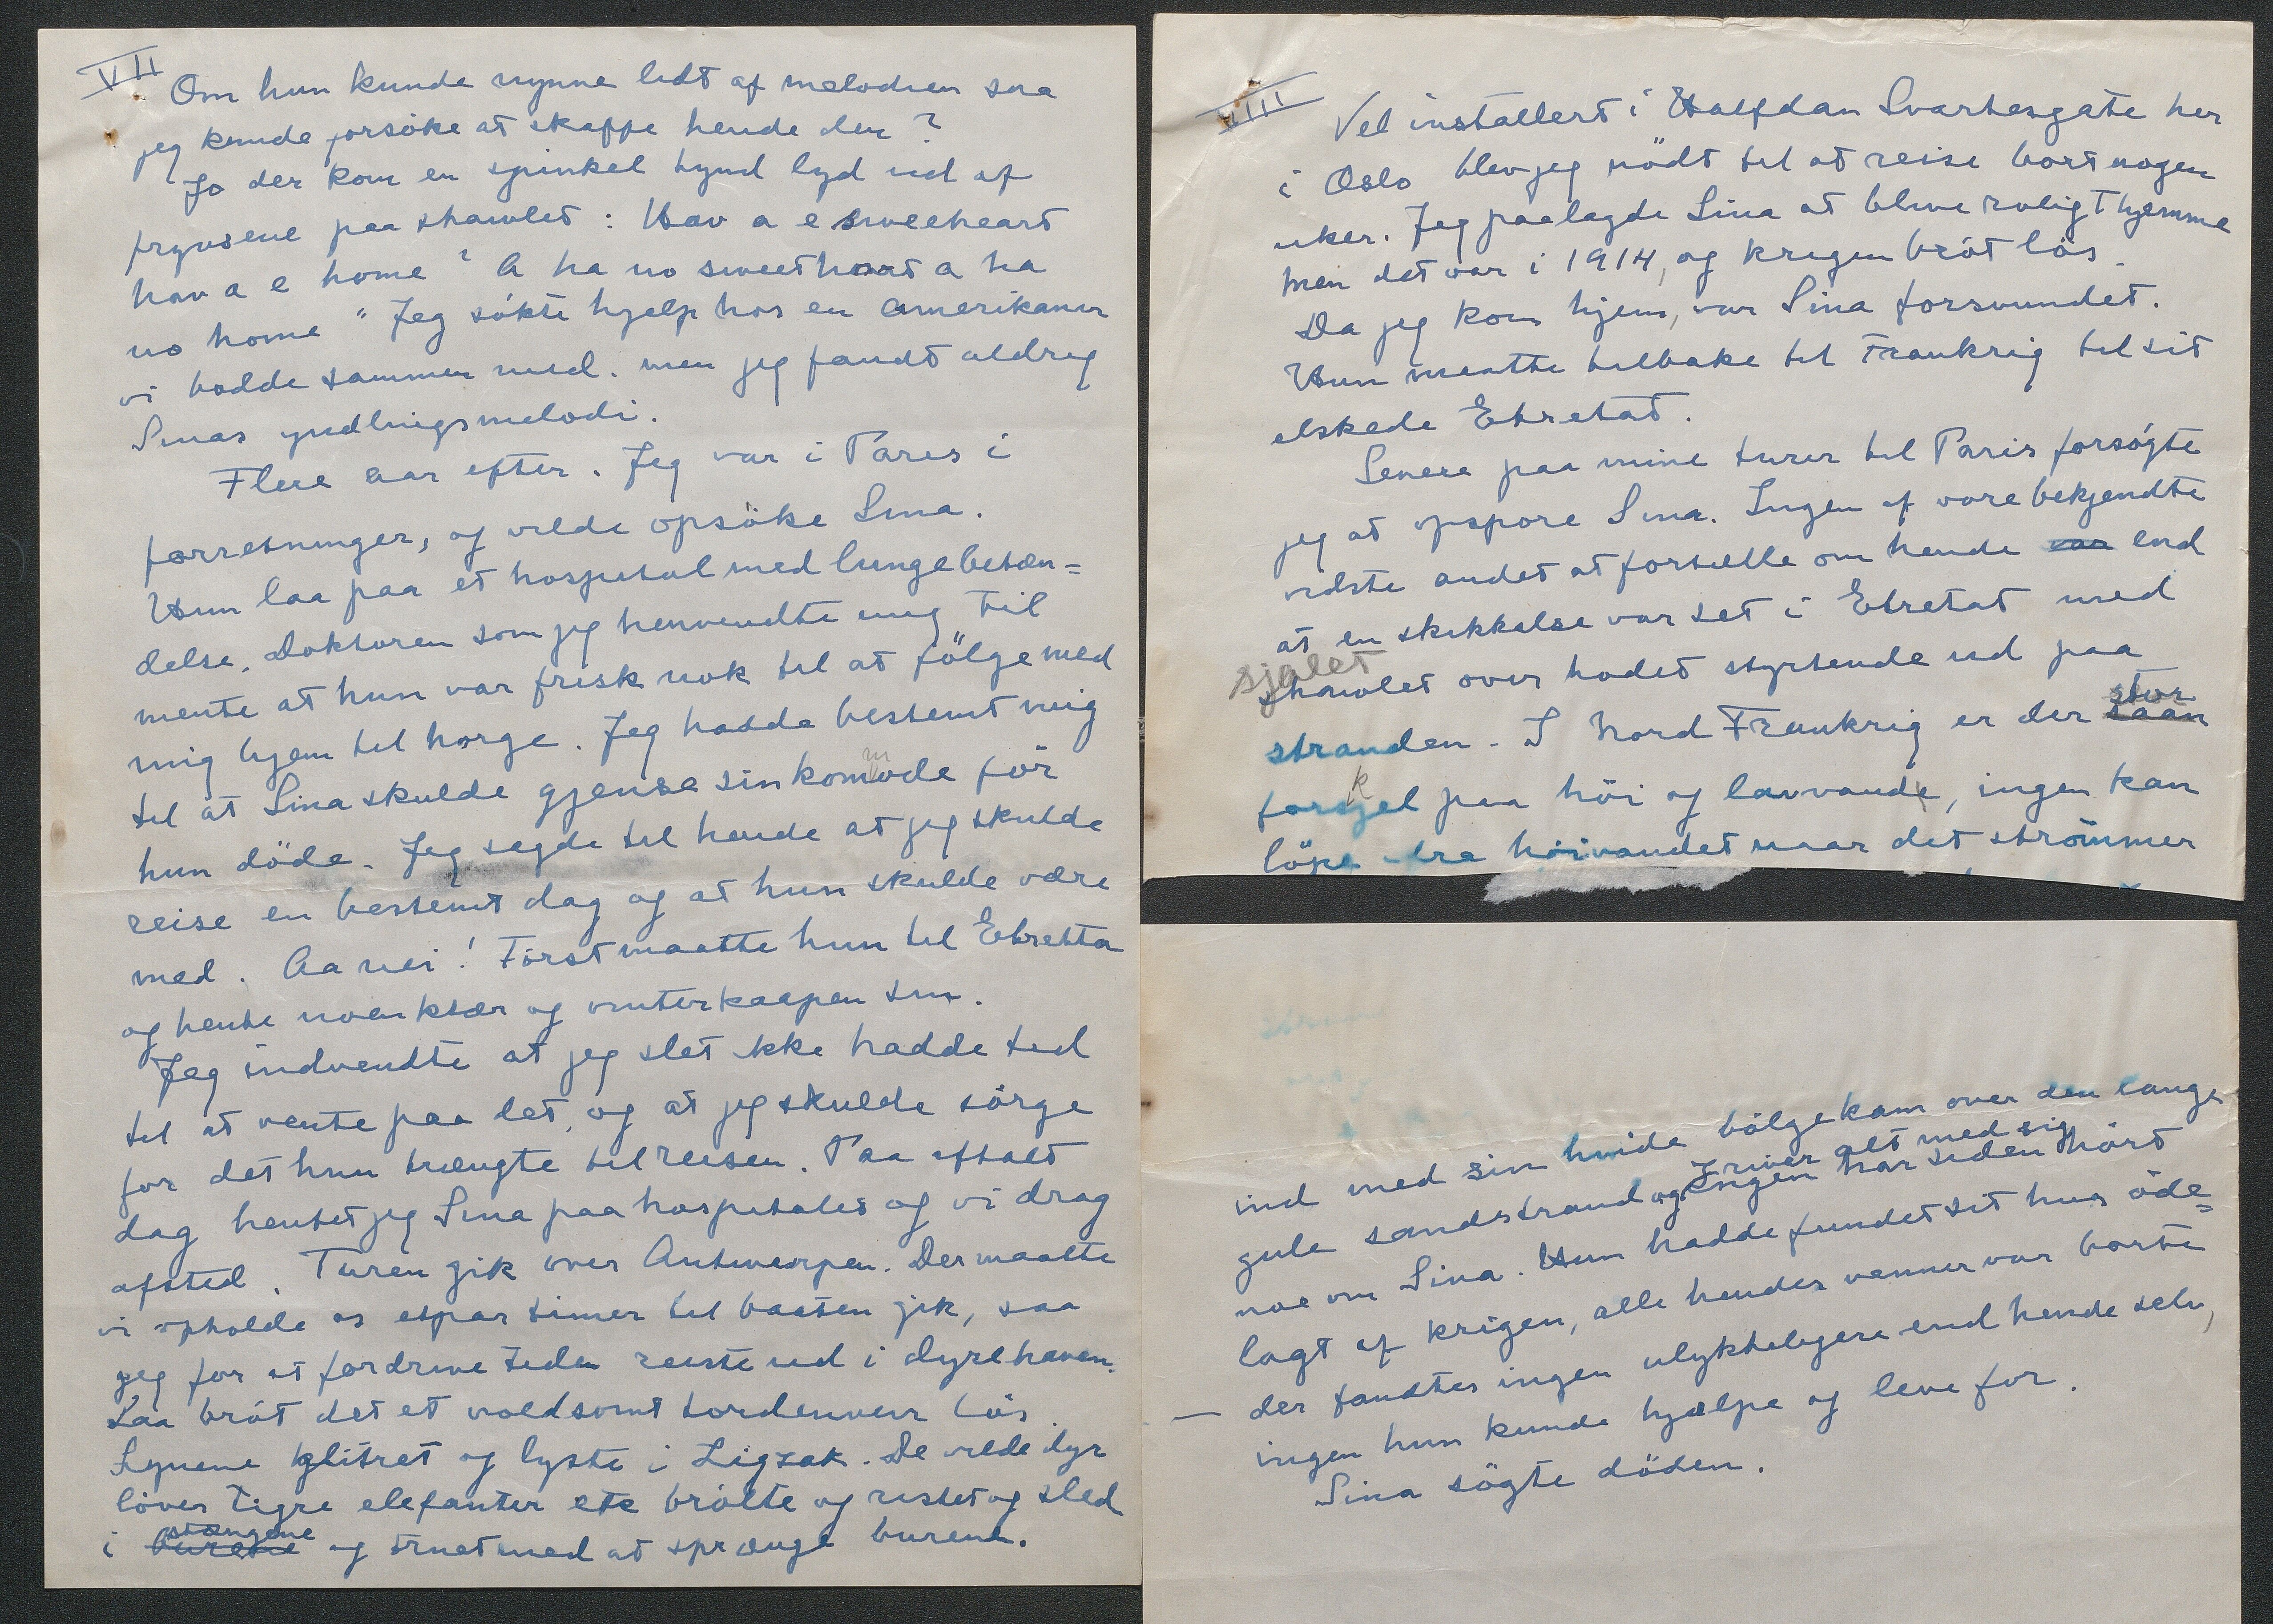 VII
Om hun kunde nynne lidt af melodien saa
jeg kunde forsöke at skaffe hende den?
Jo der kom en spinkel tynd lyd ud af
frynsene paa shawlet: Hav a e sweeheart
hav a e home? A ha no sweetheart a ha
no home" Jeg sökte hjelp hos en Amerikaner
vi bodde sammen med. men jeg fandt aldrig
Sinas yndlingsmelodi.
Flere aar efter. Jeg var i Paris i
forretninger, og vilde opsöke Sina.
Hun laa paa et hospital med lungebetæn=
delse. Doktoren som jeg henvendte mig til
mente at hun var frisk nok til at fölge med
mig hjem til Norge. Jeg hadde bestemt mig
til at Sina skulde gjense sin kommode för
hun döde. Jeg sagde til hende at jeg skulde
reise en bestemt dag og at hun skulde være
med. Aa nei! Först maatte hun til Etretta
og hente noen klær og vinterkaapen sin.
Jeg indvendte at jeg slet ikke hadde tid
til at vente paa det, og at jeg skulde sörge
for det hun trængte til reisen. Paa aftalt
dag hentet jeg Sina paa hospitalet og vi drog
afsted. Turen gik over Antwerpen. Der maatte
vi opholde os et par timer til baaten gik, saa
jeg for at fordrive tiden reiste ud i dyrehaven.
Saa bröt det et voldsomt tordenveir lös.
Lynene glitret og lyste i Zigzak. De vilde dyr
löver tigre elefanter etc brölte og ristet og sled
i burene stængene og truet med at sprænge burene.
VIII
Vel installert i Halfdan Svartesgate her
i Oslo blev jeg nödt til at reise bort nogen
uker. Jeg paalagde Sina at blive roligt hjemme
men det var i 1914, og krigen bröt lös.
Da jeg kom hjem, var Sina forsvundet.
Hun maatte tilbake til Frankrig til sit
elskede Etretat.
Senere paa mine turer til Paris forsøgte
jeg at opspore Sina. Ingen af vore bekjendte
vidste andet at fortælle om hende var end
at en skikkelse var set i Etretat med
sjalet
shawlet over hodet styrtende ud paa
stranden. I Nord Frankrig er der saan stor
forskjel paa höi og lavvande, ingen kan
löpe fra höivandet naar det strömmer
ind med sin hvide bölgekam over den lange
gule sandstrand og river alt med sig. Ingen har siden hört
noe om Sina. Hun hadde fundet sit hus öde=
lagt af krigen, alle hendes venner var borte
— der fandtes ingen ulykkeligere end hende selv,
ingen hun kunde hjælpe og leve for.
Sina sögte döden.